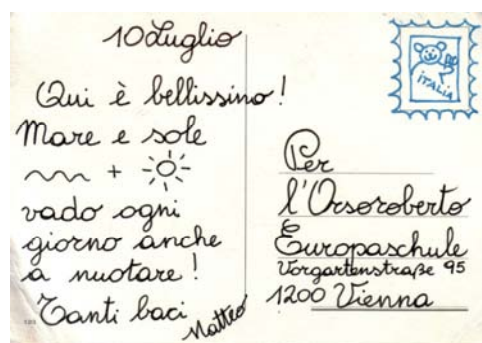 10 Luglio
Qui è bellissimo!
Mare e sole
+
vado ogni
giorno anche
a nuotare!
Tanti baci
Matteo
ITALIA
Per
l'Orsoroberto
Europaschule
Vorgartenstraße 95
1200 Vienna